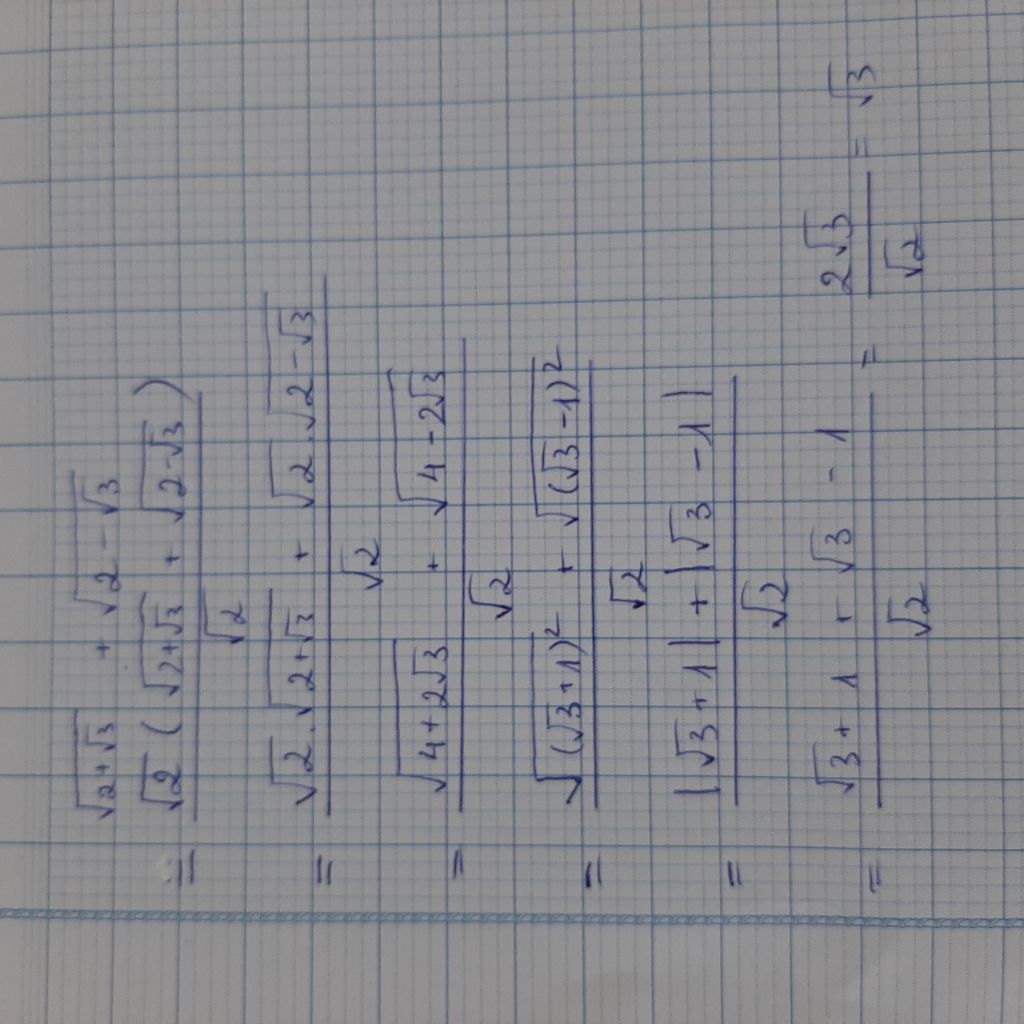 √(2+√3) + √(2-√3)
= (√2 (√(2+√3) + √(2-√3))) / √2
= (√2 . √(2+√3) + √2 . √(2-√3)) / √2
= (√(4+2√3) + √(4-2√3)) / √2
= (√((√3+1)²) + √((√3-1)²)) / √2
= (|√3+1| + |√3-1|) / √2
= (√3+1 + √3-1) / √2 = 2√3 / √2 = √3